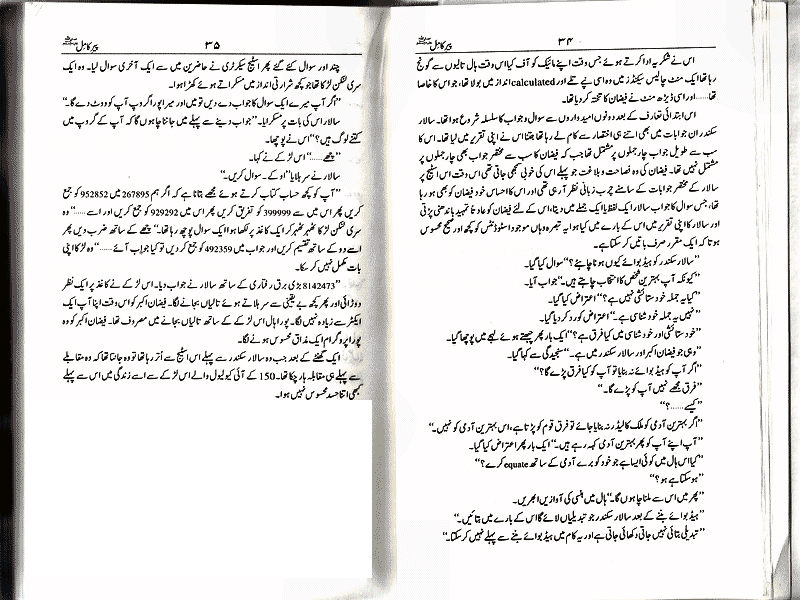 پیر کامل ۳۴
اس نے شکریہ ادا کرتے ہوئے جس وقت اپنے مائیک کو آف کیا اس وقت ہال تالیوں سے گونج
رہا تھا ایک منٹ چالیس سیکنڈز میں وہ اسی نپے تلے اور calculated انداز میں بولا تھا، جو اس کا خاصا
تھا...... اور اسی ڈیڑھ منٹ نے فیضان کا تختہ کر دیا تھا۔
اس ابتدائی تعارف کے بعد دونوں امیدواروں سے سوال و جواب کا سلسلہ شروع ہوا تھا۔ سالار
سکندر ان جوابات میں بھی اتنے ہی اختصار سے کام لے رہا تھا جتنا اس نے اپنی تقریر میں لیا تھا۔ اس کا
سب سے طویل جواب چار جملوں پر مشتمل تھا جب کہ فیضان کا سب سے مختصر جواب بھی چار جملوں پر
مشتمل نہیں تھا۔ فیضان کی وہ فصاحت و بلاغت جو پہلے اس کی خوبی سمجھی جاتی تھی اس وقت اس اسٹیج پر
سالار کے مختصر جوابات کے سامنے چرب زبانی نظر آ رہی تھی اور اس کا احساس خود فیضان کو بھی ہو رہا
تھا، جس سوال کا جواب سالار ایک لفظ یا ایک جملے میں دیتا، اس کے لئے فیضان کو عادتاً تمہید باندھنی پڑتی
اور سالار کا اپنی تقریر میں اس کے بارے میں کیا ہوا یہ تبصرہ وہاں موجود اسٹوڈنٹس کو کچھ اور صحیح محسوس
ہوتا کہ ایک مقرر صرف باتیں کر سکتا ہے۔
”سالار سکندر کو ہیڈ بوائے کیوں ہونا چاہئے؟“ سوال کیا گیا۔
”کیونکہ آپ بہترین شخص کا انتخاب چاہتے ہیں۔“ جواب آیا۔
”کیا یہ جملہ خود ستائشی نہیں ہے؟“ اعتراض کیا گیا۔
”نہیں یہ جملہ خود شناسی ہے۔“ اعتراض کو رد کر دیا گیا۔
”خود ستائشی اور خود شناسی میں کیا فرق ہے؟“ ایک بار پھر چبھتے ہوئے لہجے میں پوچھا گیا۔
”وہی جو فیضان اکبر اور سالار سکندر میں ہے۔“ سنجیدگی سے کہا گیا۔
”اگر آپ کو ہیڈ بوائے نہ بنایا تو آپ کو کیا فرق پڑے گا؟“
”فرق مجھے نہیں آپ کو پڑے گا۔“
”کیسے......؟“
”اگر بہترین آدمی کو ملک کا لیڈر نہ بنایا جائے تو فرق قوم کو پڑتا ہے، اس بہترین آدمی کو نہیں۔“
”آپ اپنے آپ کو پھر بہترین آدمی کہہ رہے ہیں۔“ ایک بار پھر اعتراض کیا گیا۔
”کیا اس ہال میں کوئی ایسا ہے جو خود کو برے آدمی کے ساتھ equate کرے؟“
”ہو سکتا ہے ہو؟“
”پھر میں اس سے ملنا چاہوں گا۔“ ہال میں ہنسی کی آوازیں ابھریں۔
”ہیڈ بوائے بننے کے بعد سالار سکندر جو تبدیلیاں لائے گا اس کے بارے میں بتائیں۔“
”تبدیلی بتائی نہیں جاتی دکھائی جاتی ہے اور یہ کام میں ہیڈ بوائے بننے سے پہلے نہیں کر سکتا۔“
پیر کامل ۳۵
چند اور سوال کئے گئے پھر اسٹیج سیکرٹری نے حاضرین میں سے ایک آخری سوال لیا۔ وہ ایک
سری لنکن لڑکا تھا جو کچھ شرارتی انداز میں مسکراتے ہوئے کھڑا ہوا۔
”اگر آپ میرے ایک سوال کا جواب دے دیں تو میں اور میرا پورا گروپ آپ کو ووٹ دے گا۔“
سالار اس کی بات پر مسکرایا۔ ”جواب دینے سے پہلے میں جاننا چاہوں گا کہ آپ کے گروپ میں
کتنے لوگ ہیں؟“ اس نے پوچھا۔
”چھے......“ اس لڑکے نے کہا۔
سالار نے سر ہلایا ”او کے۔ سوال کریں۔“
”آپ کو کچھ حساب کتاب کرتے ہوئے مجھے بتانا ہے کہ اگر ہم 267895 میں 952852 کو جمع
کریں پھر اس میں سے 399999 کو تفریق کریں پھر اس میں 929292 کو جمع کریں اور اسے......“ وہ
سری لنکن لڑکا ٹھہر ٹھہر کر ایک کاغذ پر لکھا ہوا ایک سوال پوچھ رہا تھا۔ ”چھے کے ساتھ ضرب دیں پھر
اسے دو کے ساتھ تقسیم کریں اور جواب میں 492359 کو جمع کر دیں تو کیا جواب آئے......“ وہ لڑکا اپنی
بات مکمل نہیں کر سکا۔
”8142473“ بڑی برق رفتاری کے ساتھ سالار نے جواب دیا۔ اس لڑکے نے کاغذ پر ایک نظر
دوڑائی اور پھر کچھ بے یقینی سے سر ہلاتے ہوئے تالیاں بجانے لگا۔ فیضان اکبر کو اس وقت اپنا آپ ایک
ایکٹر سے زیادہ نہیں لگا۔ پورا ہال اس لڑکے کے ساتھ تالیاں بجانے میں مصروف تھا۔ فیضان اکبر کو وہ
پورا پروگرام ایک مذاق محسوس ہونے لگا۔
ایک گھنٹے کے بعد جب وہ سالار سکندر سے پہلے اس اسٹیج سے اتر رہا تھا تو وہ جانتا تھا کہ وہ مقابلے
سے پہلے ہی مقابلہ ہار چکا تھا۔ 150 کے آئی کیو لیول والے اس لڑکے سے اسے زندگی میں اس سے پہلے
کبھی اتنا حسد محسوس نہیں ہوا۔